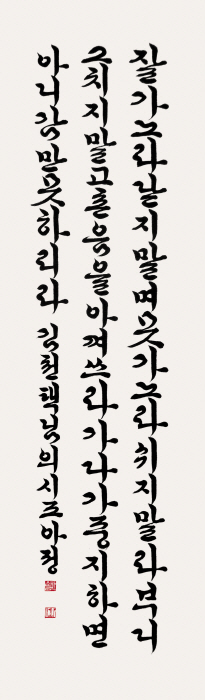 잘가노라닫지말며못가노라쉬지말라부디
그치지말고촌음을아껴쓰라가다가중지하면
아니감만못하리라 김천택님의시조아정